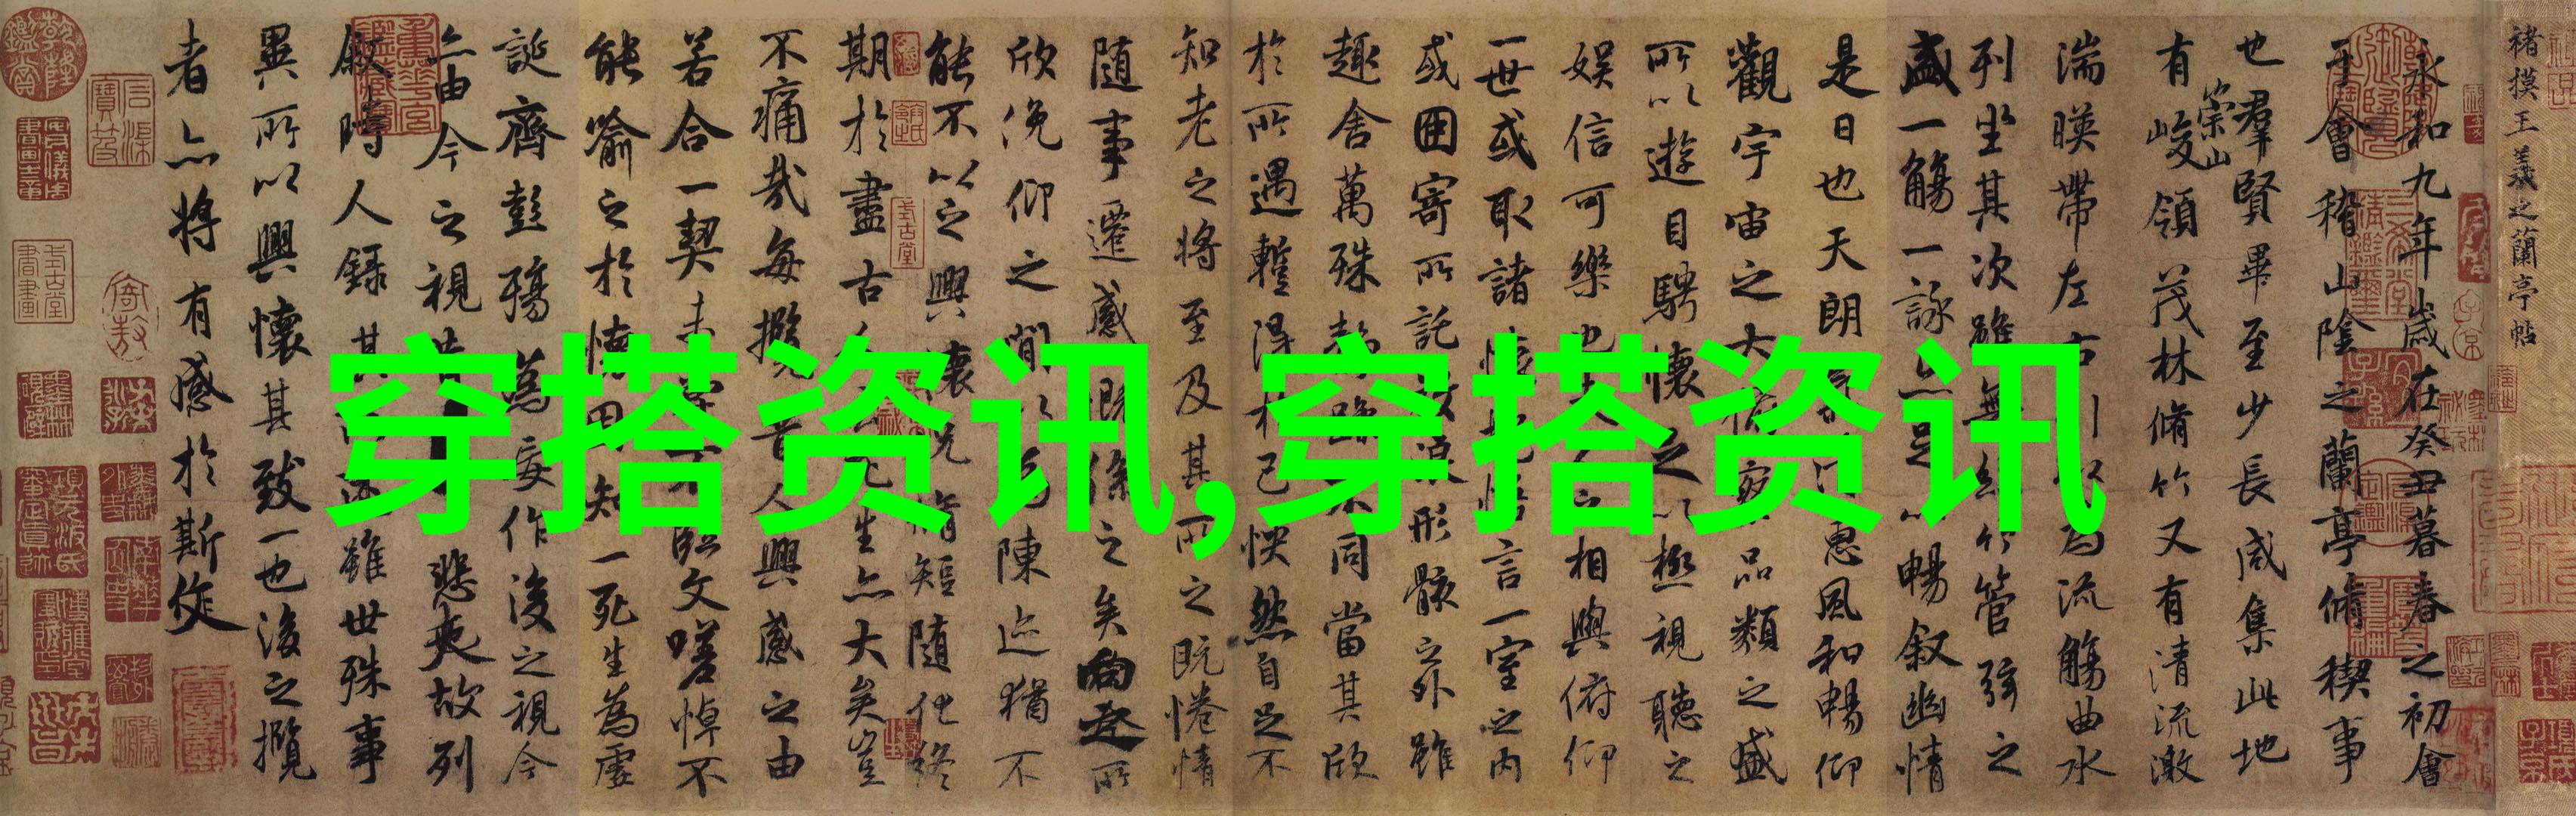 褚摸王羲之蘭亭帖
永和九年歲在癸丑暮春之初會
于會稽山陰之蘭亭脩稧事
也羣賢畢至少長咸集此地
有崇山峻領茂林脩竹又有清流激
湍暎帶左右引為流觴曲水
列坐其次雖無絲竹管弦之
盛一觴一詠亦足以暢叙幽情
是日也天朗惠風和暢仰
觀宇宙之大品類之盛
所以遊目騁懷足以極視聽之
娛信可樂也相與俯仰
一世或取諸懷悟言一室之內
或因寄所託形骸之外雖
趣舍萬殊不同當其欣
於所遇蹔得於己怏然自足不
知老之將至及其所之既惓情
隨事遷感慨係之矣向之所
欣俛仰之閒以為陳迹猶不
能不以之興懷況脩短隨化終
期於盡古人死生亦大矣豈
不痛哉每攬昔人興感之由
若合一契未不臨文嗟悼不
能喻之於懷固知一死生為虛
誕齊彭殤為妄作後之視今
亦由今之視昔悲夫故列
叙時人錄其雖世殊事
異所以興懷其致一也後之攬
者亦將有感於斯文
穿搭资讯,穿搭资讯